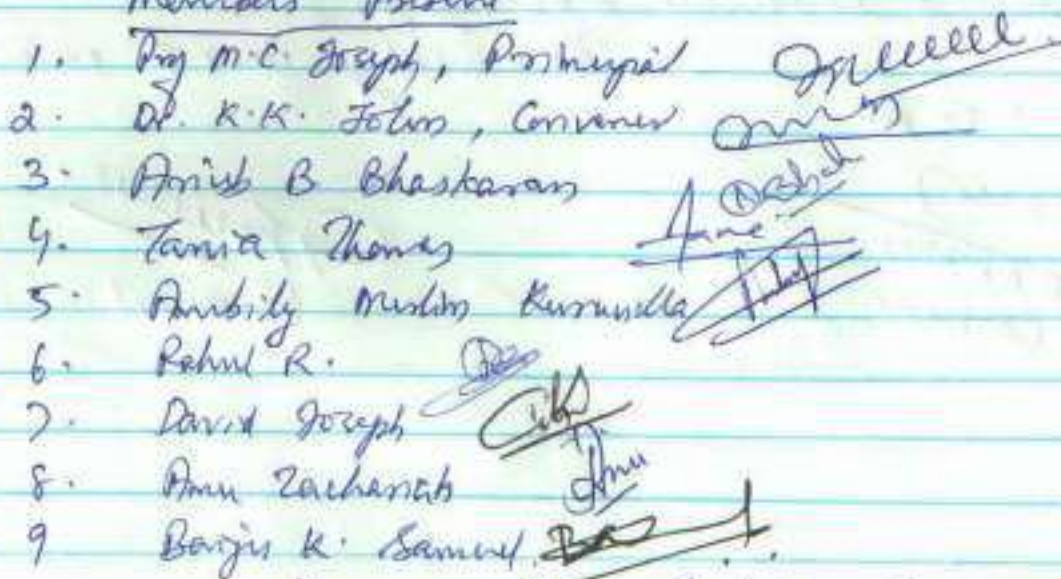 Members Present
1. Prof M.C. Joseph, Principal
2. Dr. K.K. John, Convener
3. Anish B Bhaskaran
4. Tania Thomas
5. Ambily Kuruvilla
6. Rahul R.
7. David Joseph
8. Anu Zachariah
Anu
9 K. Samuel